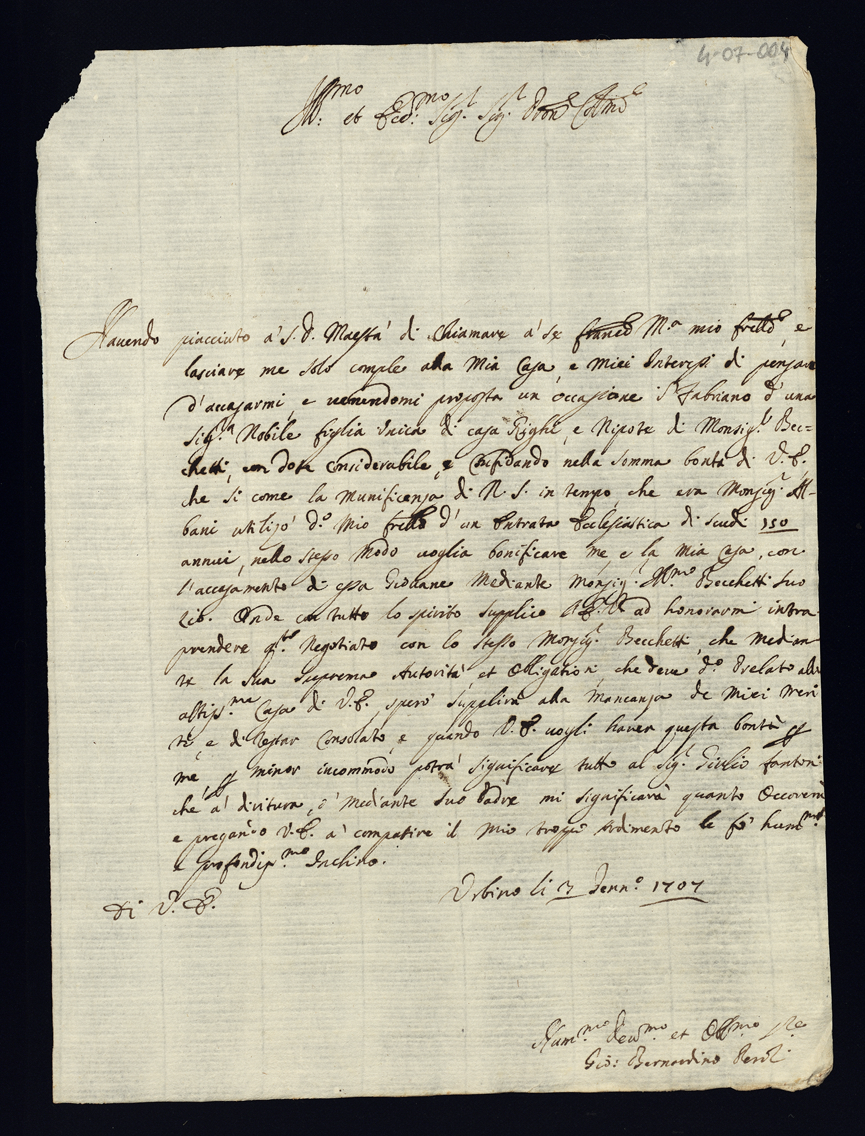 4-07-004
Ill:mo et Ecc:mo Sig.r Sig.r Pron Colmo
Havendo piacciuto a' S. D. Maestà di Chiamare a' se M.a mio frello e
lasciare me solo comple alla Mia Casa e Miei Interessi di pensare
d'accasarmi, e venendomi proposta un occasione Fabriano d'una
Sig.ra Nobile figlia Unica di casa Righi, e Nipote di Monsig.r Bec=
chetti, con dote Considerabile, e Confidando nella somma bontà di V. E.
che si come la munificenza di N. S. in tempo che era Monsig.r Al-
bani utilizò d.o Mio frello d'un Entrata Ecclesiastica di Scudi 150
annui, nello stesso Modo voglia bonificare me e la mia Casa, con
l'accasamento di essa Giovane Mediante Monsig.r Ill.mo Becchetti suo
Zio. Onde con tutto lo spirito supplico V. E. ad honorarmi intra
prendere q.to Negotiato con lo stesso Monsig.r Becchetti, che median
te la sua suprema Autorità, et Obligationi che deve d.o Prelato alla
altiss.ma Casa di V. E. spero supplirà alla mancanza de Miei Meri
ti, e di restar Consolato, e quando V. E. vogli haver questa bontà p
me p minor incommodo potrà significare tutto al Sig.r Giulio Fantoni
che a' diritura, o' Mediante suo Padre mi significarà quanto Occorerà
e pregando V. E. a' compatire il mio troppo Ardimento le fò hum.mo
e profondiss.mo Inchino.
Di V. E. Urbino li 3 Genn.o 1707
Hum.mo Dev.mo et Obb.mo
Gio: Bernardino